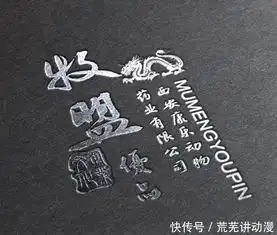 牧盟
優品
西安康动物
药业有限公司
MUMENGYOUPIN
快传号 / 荒芜讲动漫